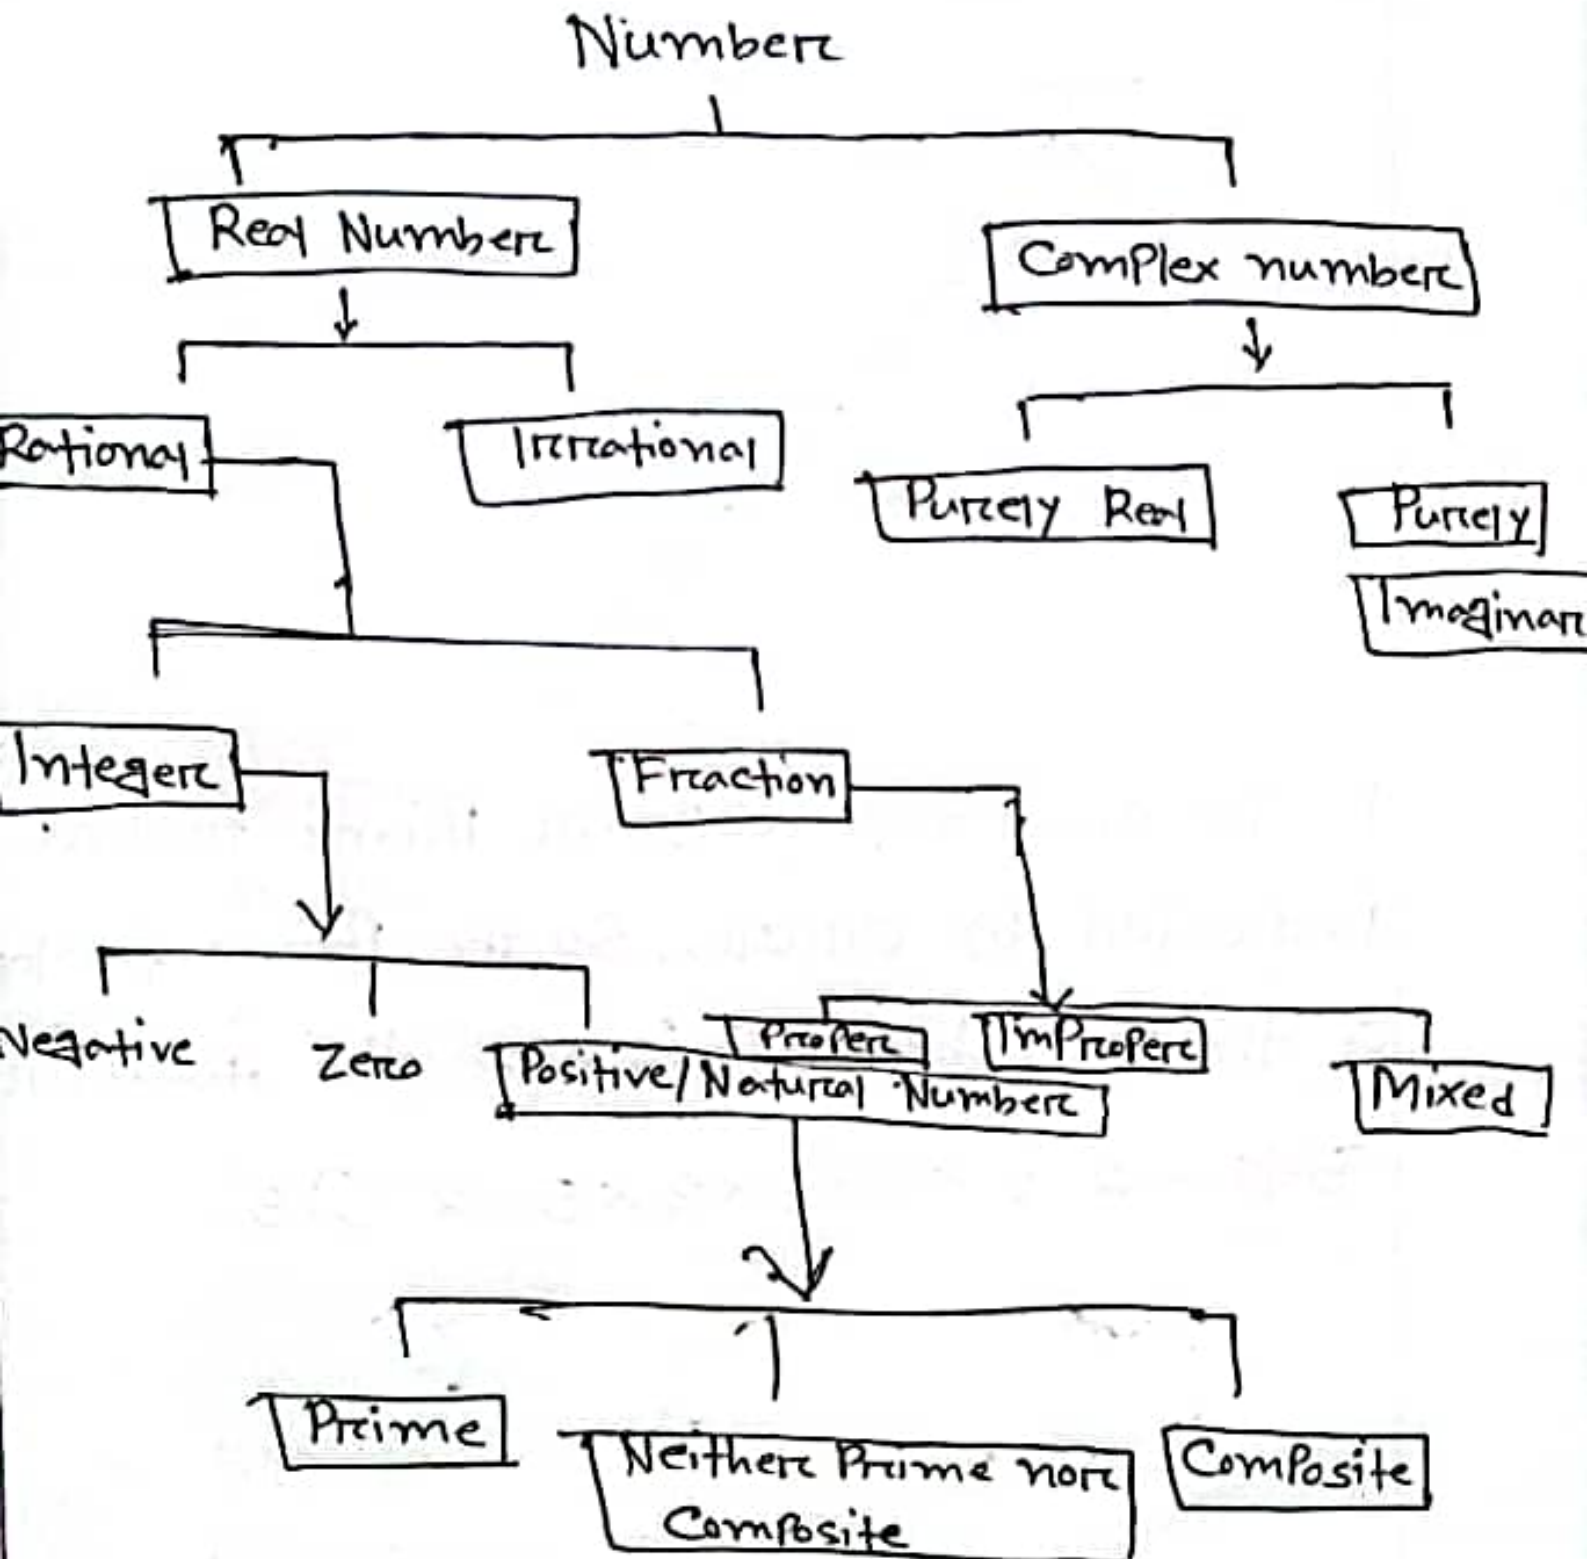 Number
Real Number
Complex number
Rational
Irrational
Purely Real
Purely
Imaginar
Integer
Fraction
Negative
Zero
Proper
Improper
Positive/Natural Number
Mixed
Prime
Neither Prime nor
Composite
Composite